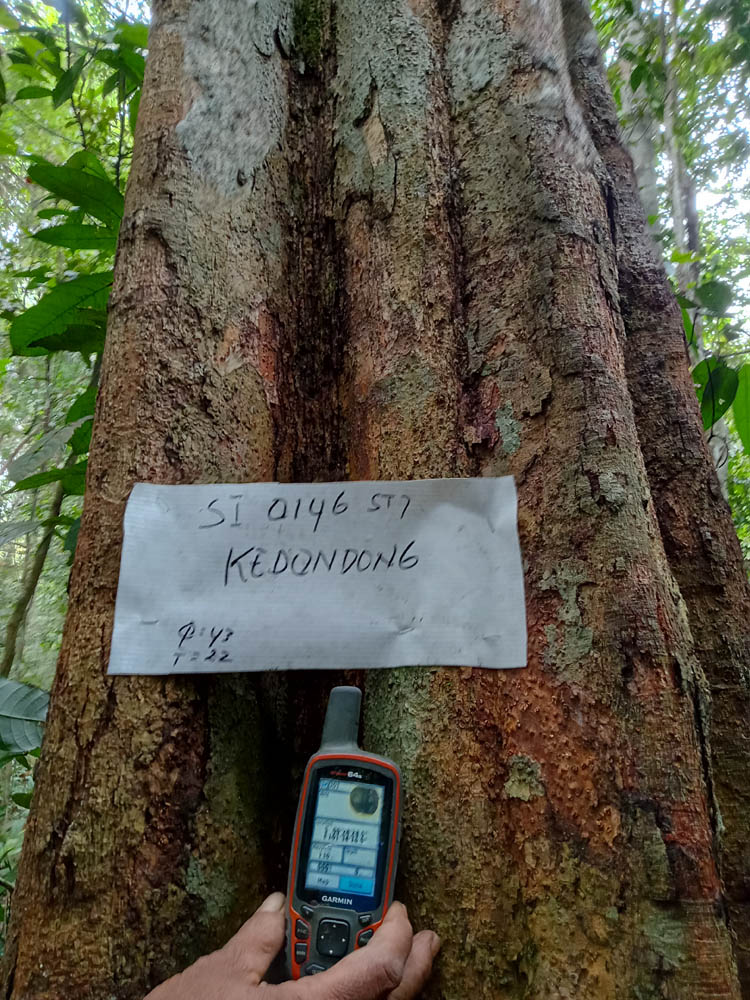 SI 0146 ST7
KEDONDONG
Φ: 43
T = 22
64s
Map
GARMIN